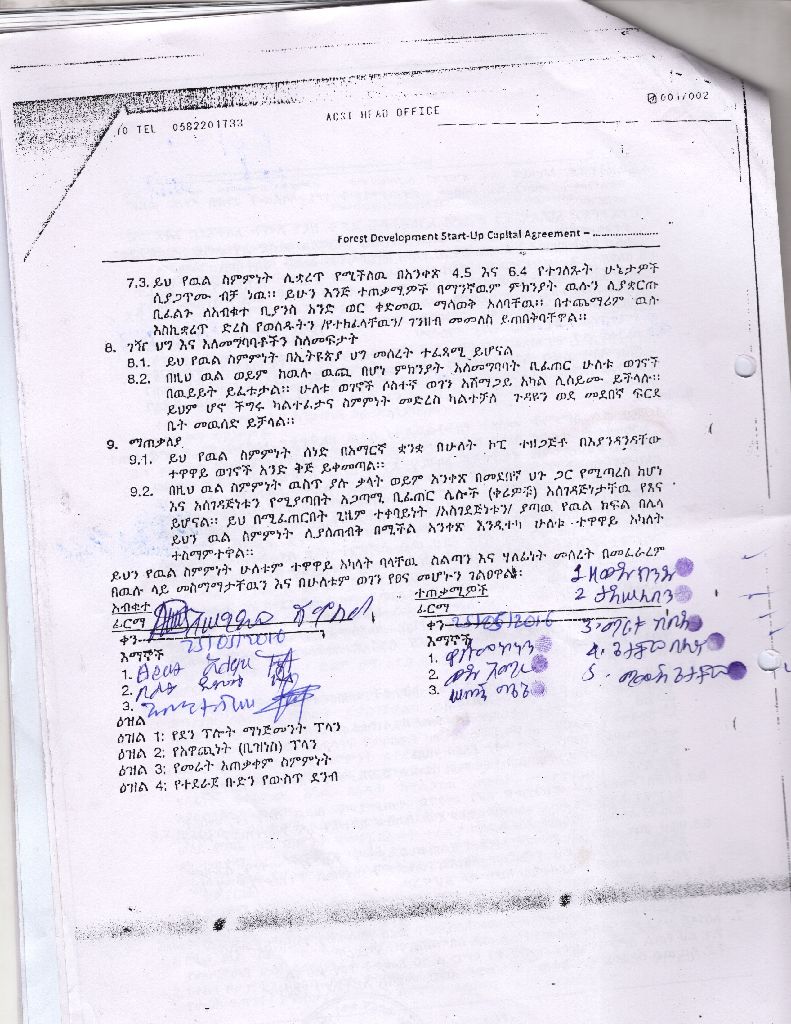 TEL 0582201733 ACSI HEAD OFFICE 001/002
Forest Development Start-Up Capital Agreement – ......................
7.3. ይህ የዉል ስምምነት ሲቋረጥ የሚችለዉ በአንቀጽ 4.5 እና 6.4 የተገለጹት ሁኔታዎች
ሲያጋጥሙ ብቻ ነዉ፡፡ ይሁን እንጅ ተጠቃሚዎች በማንኛዉም ምክንያት ዉሉን ሲያቋርጡ
ቢፈልጉ ለአብቁተ ቢያንስ አንድ ወር ቀድመዉ ማሳወቅ አለባቸዉ፡፡ በተጨማሪም ዉሉ
እስኪቋረጥ ድረስ የወሰዱትን /የተከፈላቸዉን/ ገንዘብ መመለስ ይጠበቅባቸዋል፡፡
8. ገዥ ህግ እና አለመግባባቶችን ስለመፍታት
8.1. ይህ የዉል ስምምነት በኢትዩጵያ ህግ መሰረት ተፈጻሚ ይሆናል
8.2. በዚህ ዉል ወይም ከዉሉ ዉጪ በሆነ ምክንያት አለመግባባት ቢፈጠር ሁለቱ ወገኖች
በዉይይት ይፈቱታል፡፡ ሁለቱ ወገኖች ሶስተኛ ወገን አሸማጋይ አካል ሊሰይሙ ይችላሉ፡፡
ይህም ሆኖ ችግሩ ካልተፈታና ስምምነት መድረስ ካልተቻለ ጉዳዩን ወደ መደበኛ ፍርድ
ቤት መዉሰድ ይቻላል፡፡
9. ማጠቃለያ
9.1. ይህ የዉል ስምምነት ሰነድ በአማርኛ ቋንቋ በሁለት ኮፒ ተዘጋጅቶ በእያንዳንዳቸው
ተዋዋይ ወገኖች አንድ ቅጅ ይቀመጣል፡፡
9.2. በዚህ ዉል ስምምነት ዉስጥ ያሉ ቃላት ወይም አንቀጽ በመደበኛ ህጉ ጋር የሚጣረስ ከሆነ
እና አስገዳጅነቱን የሚያጣበት አጋጣሚ ቢፈጠር ሌሎች (ቀሪዎቹ) አስገዳጅነታቸዉ የጸና
ይሆናል፡፡ ይህ በሚፈጠርበት ጊዜም ተቀባይነት /አስገደጅነቱን/ ያጣዉ የዉል ክፍል በሌላ
ይህን ዉል ስምምነት ሊያስጠብቅ በሚችል አንቀጽ እንዲተካ ሁለቱ ተዋዋይ አካላት
ተስማምተዋል፡፡
ይህን የዉል ስምምነት ሁለቱም ተዋዋይ አካላት ባላቸዉ ስልጣን እና ሃለፊነት መሰረት በመፈራረም
በዉሉ ላይ መስማማታቸዉን እና በሁለቱም ወገን የፀና መሆኑን ገልፀዋል፡
አብቁተ ተጠቃሚዎች
ፊርማ ፊርማ
ቀን 25/05/2010 ቀን 25/05/2010
እማኞች እማኞች
1. 1.
2. 2.
3. 3.
ዕዝል
ዕዝል 1: የደን ፕሎት ማነጅመንት ፕላን
ዕዝል 2: የአዋጪነት (ቢዝነስ) ፕላን
ዕዝል 3: የመሬት አጠቃቀም ስምምነት
ዕዝል 4: የተደራጀ ቡድን የውስጥ ደንብ